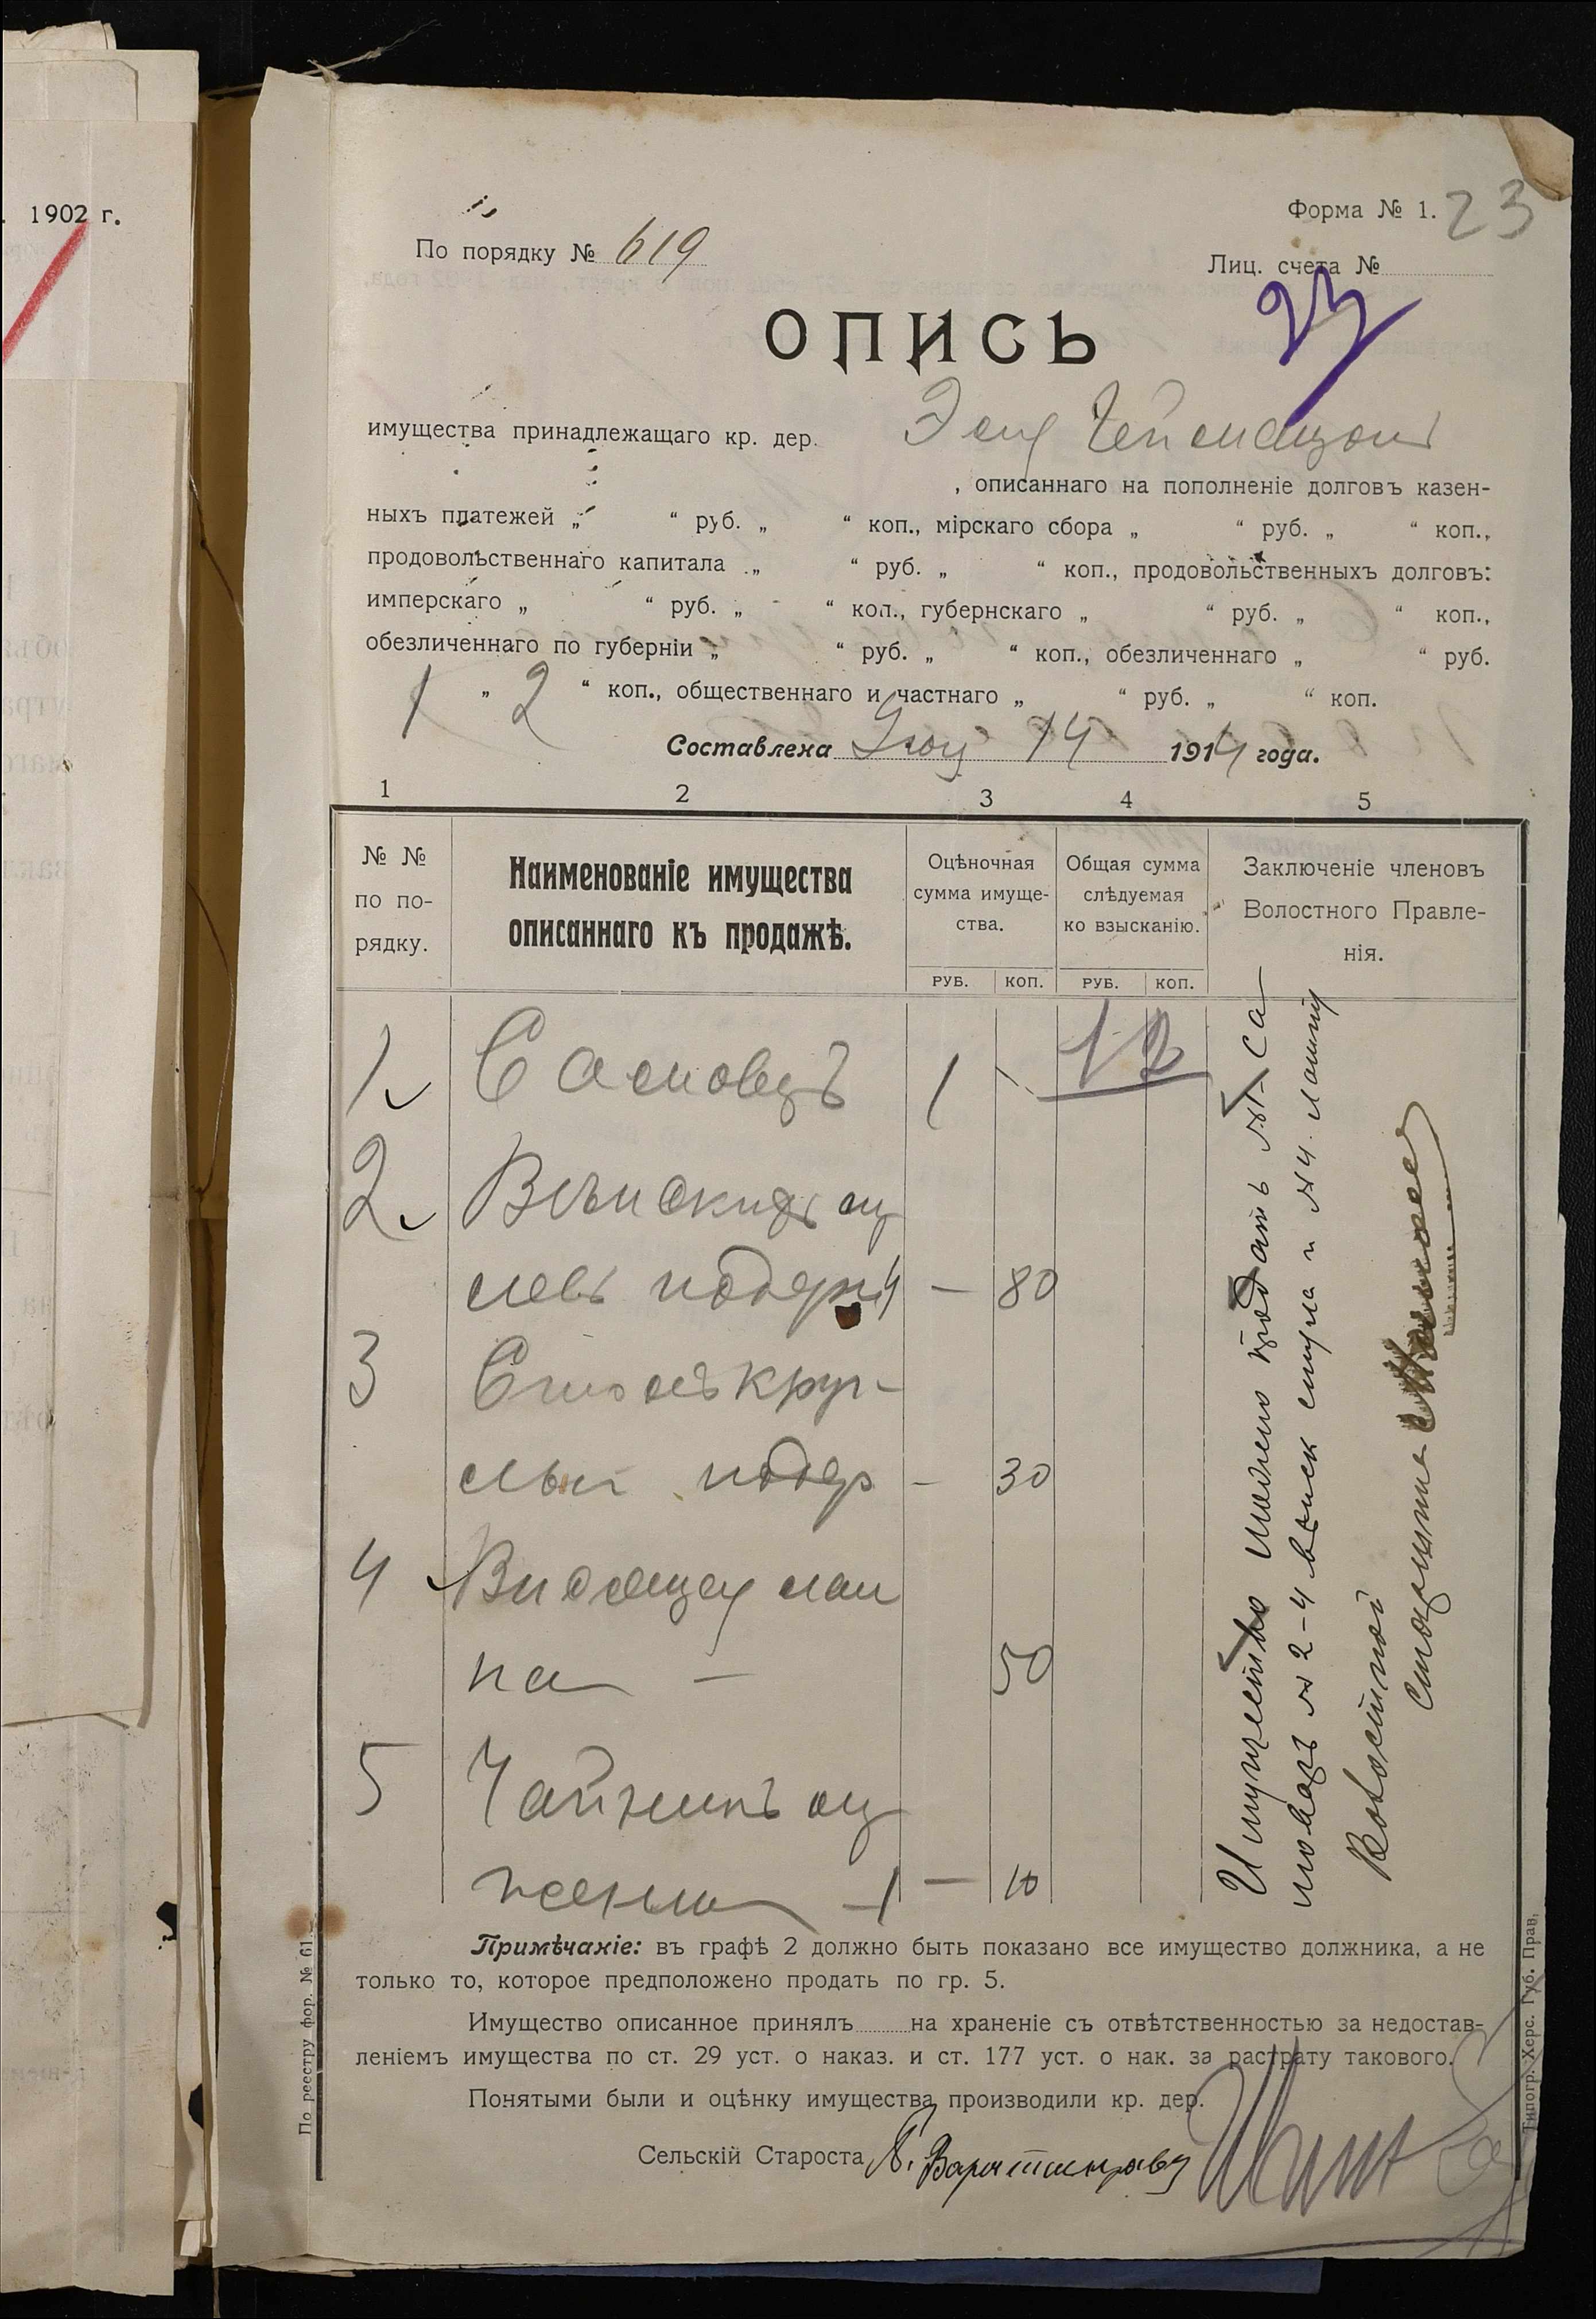 1902 г.
Форма № 1. 23
По порядку № 619
Лиц. счета №
23
ОПИСЬ
имущества принадлежащаго кр. дер.
, описаннаго на пополненіе долговъ казен-
ныхъ платежей „ “ руб. „ “ коп., мірскаго сбора „ “ руб. „ “ коп.,
продовольственнаго капитала „ “ руб. „ “ коп., продовольственныхъ долговъ:
имперскаго „ “ руб. „ “ коп., губернскаго „ “ руб. „ “ коп.,
обезличеннаго по губерніи „ “ руб. „ “ коп., обезличеннаго „ “ руб.
1 „ 2 “ коп., общественнаго и частнаго „ “ руб. „ “ коп.
Составлена 14 1914 года.
1 2 3 4 5
№ № по по-рядку.
Наименованіе имущества
описаннаго къ продажѣ.
Оцѣночная
сумма имуще-
ства.
Общая сумма
слѣдуемая
ко взысканію.
Заключеніе членовъ
Волостного Правле-
нія.
РУБ. КОП. РУБ. КОП.
1. 1 - 1 2
2.
80
3 Столъ круг-
лый подер - 30
4 Висящая лам
па - 50
5 Чайникъ
- 10
Имущество можно продать №1 Са-
моваръ № 2-4 венск стула и № 4 лампу
Волостной
старшина
Примѣчаніе: въ графѣ 2 должно быть показано все имущество должника, а не
только то, которое предположено продать по гр. 5.
Имущество описанное принялъ на храненіе съ отвѣтственностью за недостав-
леніемъ имущества по ст. 29 уст. о наказ. и ст. 177 уст. о нак. за растрату такового.
Понятыми были и оцѣнку имущества производили кр. дер.
Сельскій Староста
По реестру фор. № 61.
Типогр. Херс. Губ. Прав.